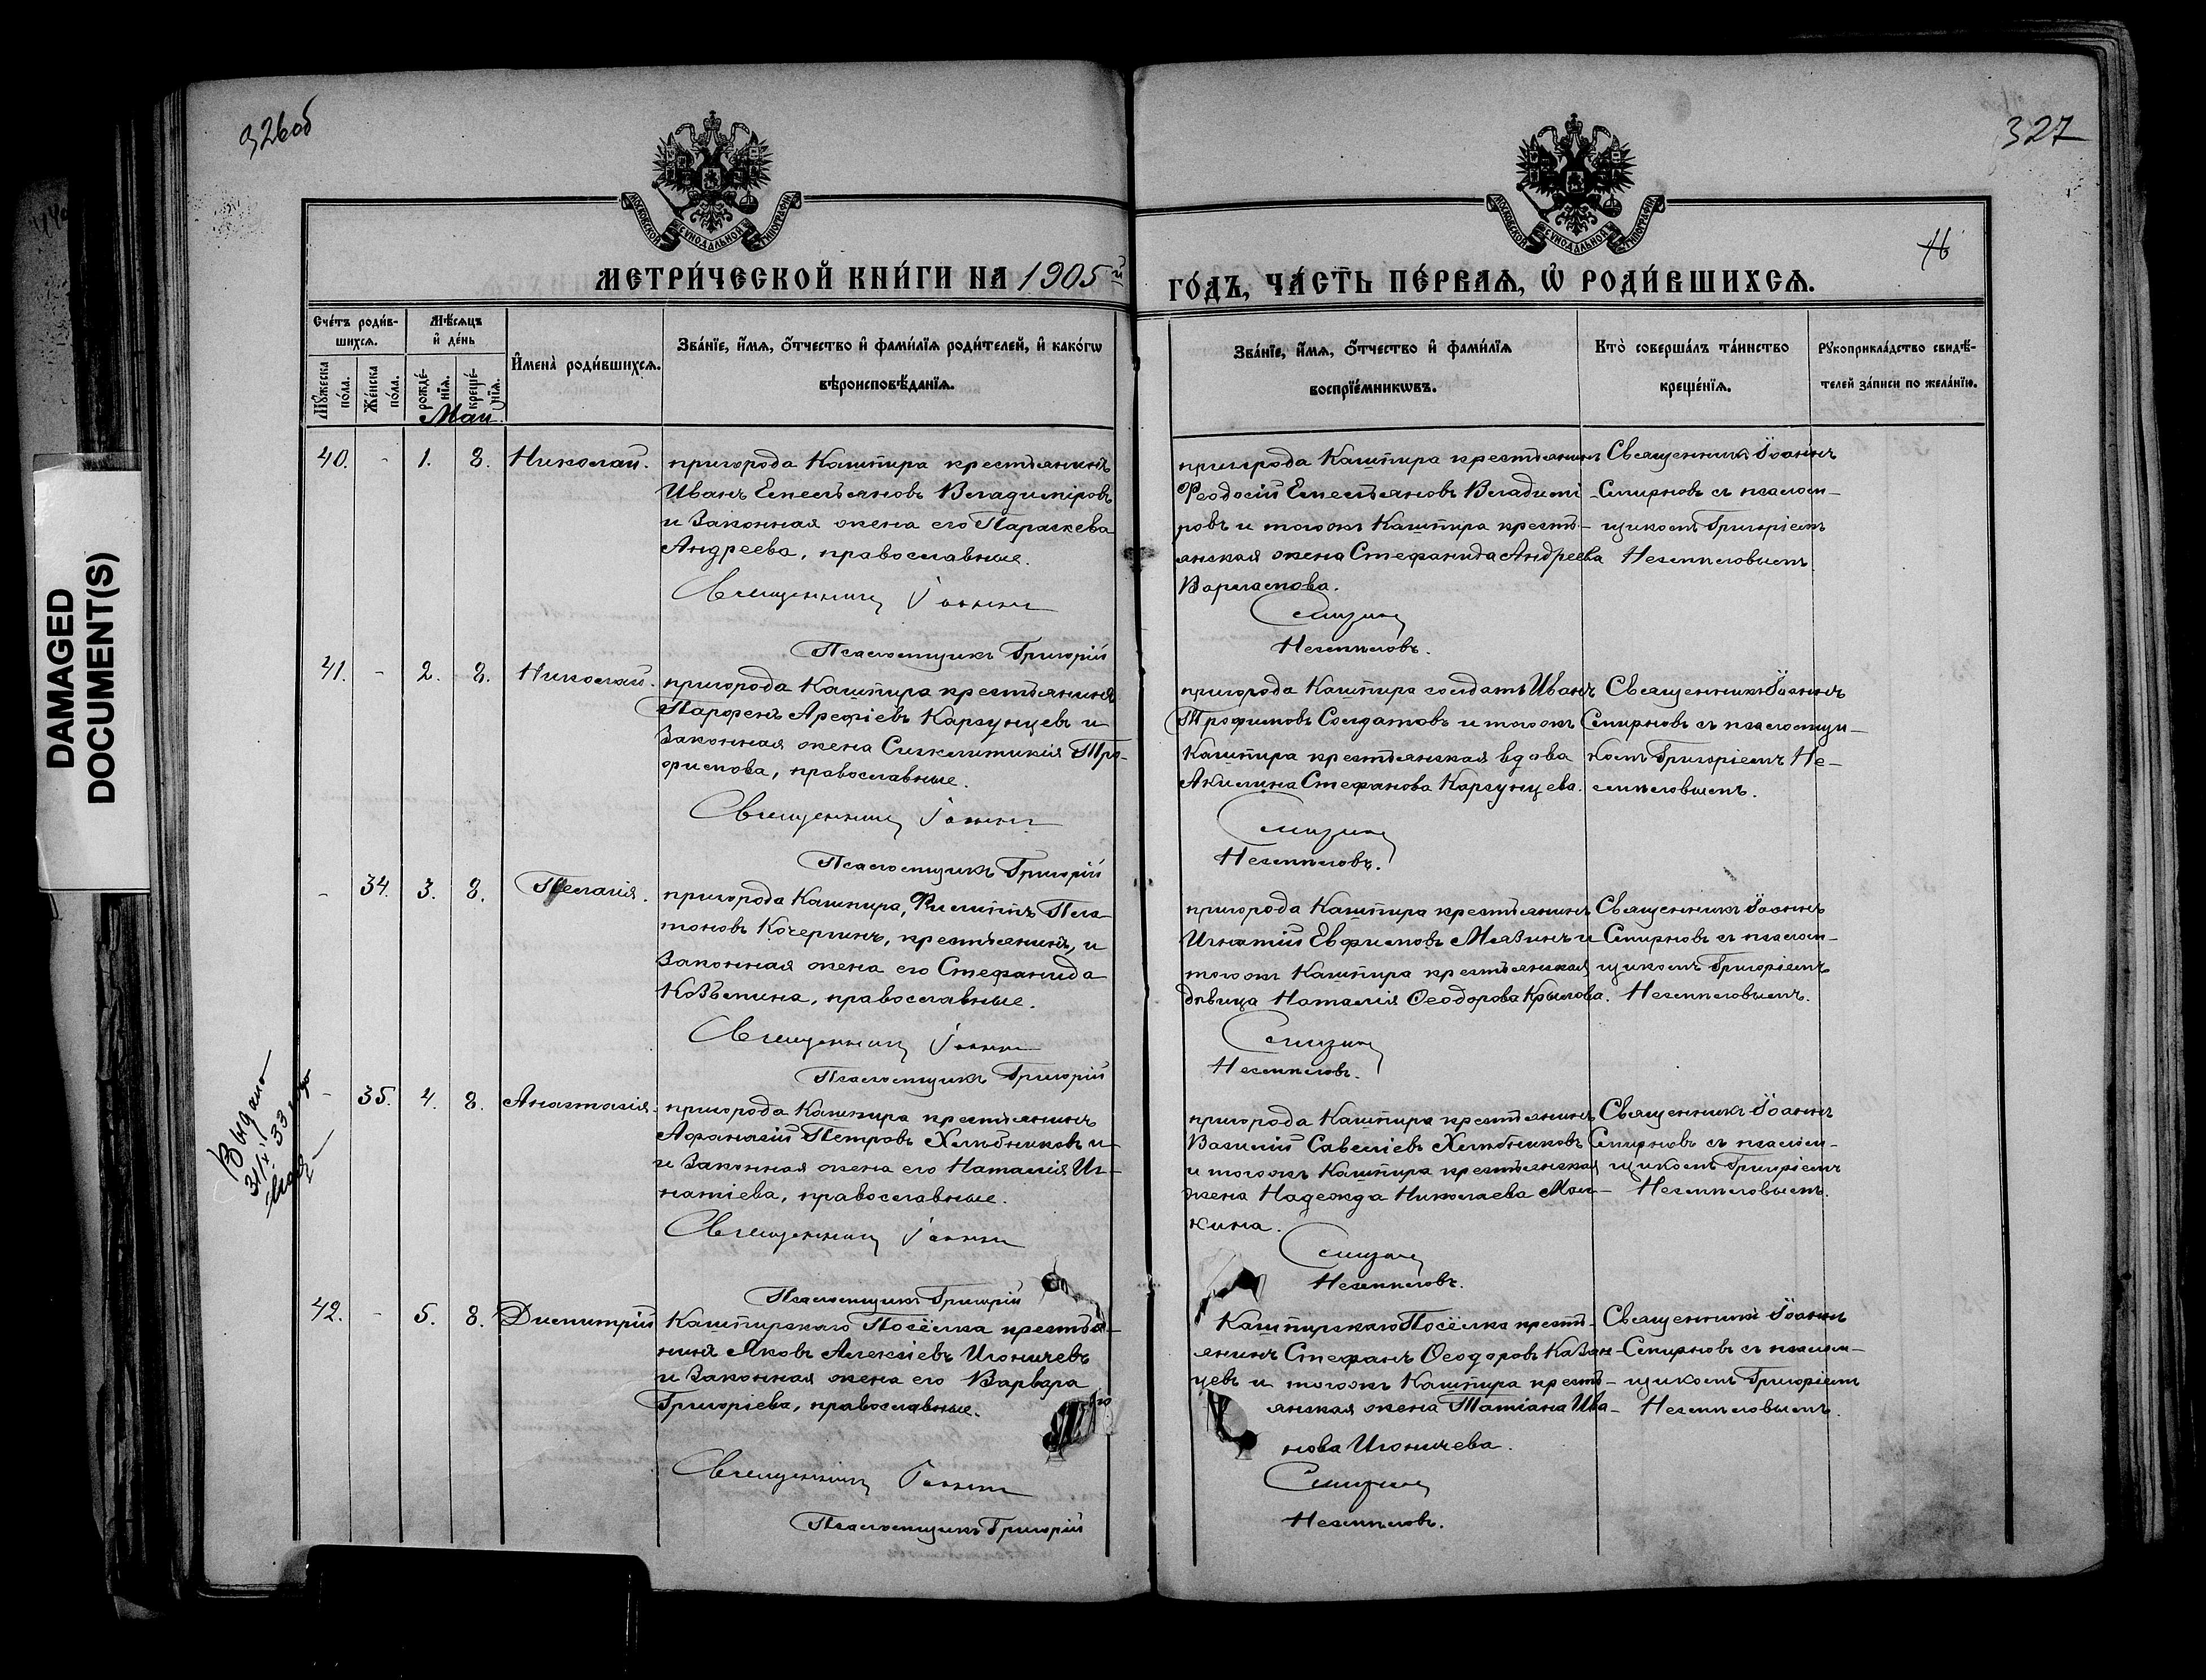 326об
327
16
DAMAGED
DOCUMENT(S)
МОСКОВСКОЙ СѴНОДАЛЬНОЙ ТИПОГРАФІИ
МОСКОВСКОЙ СѴНОДАЛЬНОЙ ТИПОГРАФІИ
МЕТРИ́ЧЕСКОЙ КНИ́ГИ НА 1905й
ГО́ДЪ, ЧА́СТЬ ПЕ́РВАѦ, Ѡ҆ РОДИ́ВШИХСѦ.
Сче́тъ роди́в-
шихсѧ.
Мѣ́сѧцъ
и҆ де́нь
Мꙋ́жеска
по́ла.
Же́нска
по́ла.
рожде́-
нїѧ.
креще́-
нїѧ.
И҆мена̀ роди́вшихсѧ.
Зва́нїе, и҆́мѧ, ѻ҆́тчество и҆ фами́лїѧ роди́телей, и҆ како́гѡ
вѣроисповѣ́данїѧ.
Зва́нїе, и҆́мѧ, ѻ҆́тчество и҆ фами́лїѧ
воспрїе́мникѡвъ.
Кто̀ соверша́лъ та́инство
креще́нїѧ.
Рꙋкоприкла́дство свидѣ́-
телей за́писи по жела́нїю.
Май
40. - 1. 8. Николай.
пригорода Кашпира крестьянинъ
Иванъ Емельяновъ Владиміровъ
и законная жена его Параскева
Андреева, православные.
Священникъ Іоаннъ
Псаломщикъ Григорій
пригорода Кашпира крестьянинъ
Ѳеодосій Емельяновъ Владимі-
ровъ и тогожъ Кашпира кресть-
янская жена Стефанида Андреева
Варламова.
Смирновъ
Незнмловъ.
Священникъ Іоаннъ
Смирновъ съ псалом-
щикомъ Григоріемъ
41. - 2. 8. Николай.
пригорода Кашпира крестьянинъ
Парфенъ Арефіевъ Каргунцевъ и
законная жена Сигклитикія Тро-
фимова, православные.
Священникъ Іоаннъ
Псаломщикъ Григорій
пригорода Кашпира солдатъ Иванъ
Трофимовъ Солдатовъ и тогожъ
Кашпира крестьянская вдова
Акилина Стефанова Каргунцева.
Смирновъ
Священникъ Іоаннъ
Смирновъ съ псаломщи-
комъ Григоріемъ
- 34. 3. 8. Пелагія.
пригорода Кашпира, Филиппъ Пла-
тоновъ Кочергинъ, крестьянинъ, и
законная жена его Стефанида
Козьмина, православные.
Священникъ Іоаннъ
Псаломщикъ Григорій
пригорода Кашпира крестьянинъ
Игнатій Евфимовъ Мязинъ и
тогожъ Кашпира крестьянская
дѣвица Наталія Ѳеодорова Крылова.
Смирновъ
Священникъ Іоаннъ
Смирновъ съ псалом-
щикомъ Григоріемъ
Выдано
- 35. 4. 8. Анастасія.
пригорода Кашпира крестьянинъ
Аѳанасій Петровъ Хлѣбниковъ и
и законная жена его Наталія Иг-
натіева, православные.
Священникъ Іоаннъ
Псаломщикъ Григорій
пригорода Кашпира крестьянинъ
Василій Савеліевъ Хлѣбниковъ
и тогожъ Кашпира крестьянская
жена Надежда Николаева Мол-
кина.
Смирновъ
Священникъ Іоаннъ
Смирновъ съ псалом-
щикомъ Григоріемъ
42. - 5. 8. Димитрій
Кашпирскаго Посёлка крестья-
нинъ Яковъ Алексіевъ Игоничевъ
и законная жена его Варвара
Григоріева, православные.
Священникъ Іоаннъ
Псаломщикъ Григорій
Кашпирскаго Посёлка кресть-
янинъ Стефанъ Ѳеодоровъ Казан-
цевъ и тогожъ Кашпира кресть-
янская жена Татіана Ива-
нова Игоничева.
Смирновъ
Священникъ Іоаннъ
Смирновъ съ псалом-
щикомъ Григоріемъ